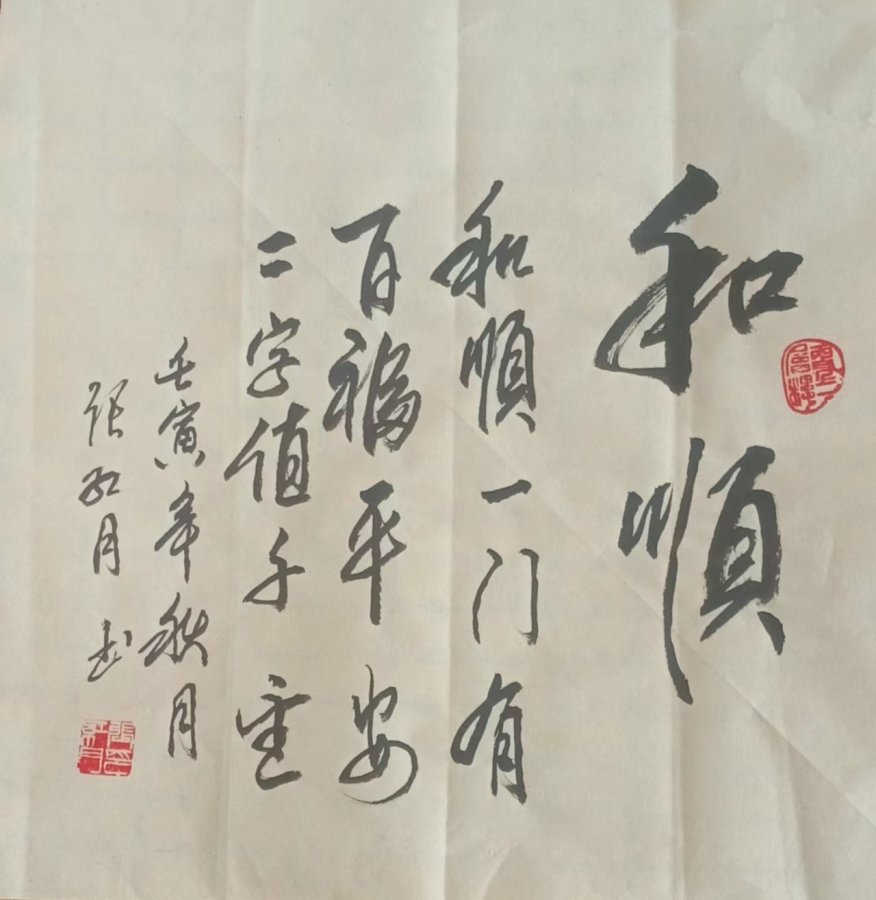 和順
和順一门有
百福平安
二字值千金
壬寅年秋月
张红月书